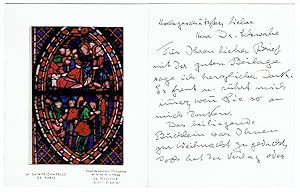 LA SAINTE CHAPELLE
DE PARIS
La Passion
(XIIIe Siècle)
Hochgeschätzter, lieber
Herr Dr. Schwabe
Für Ihren lieben Brief
mit der guten Beilage
sage ich herzlichen Dank.
Es freut u. rührt mich
immer, wenn Sie so an
mich denken.
Das beiliegende
Büchlein war Ihnen
zur Weihnacht zugedacht,
doch hat der Verlag oder